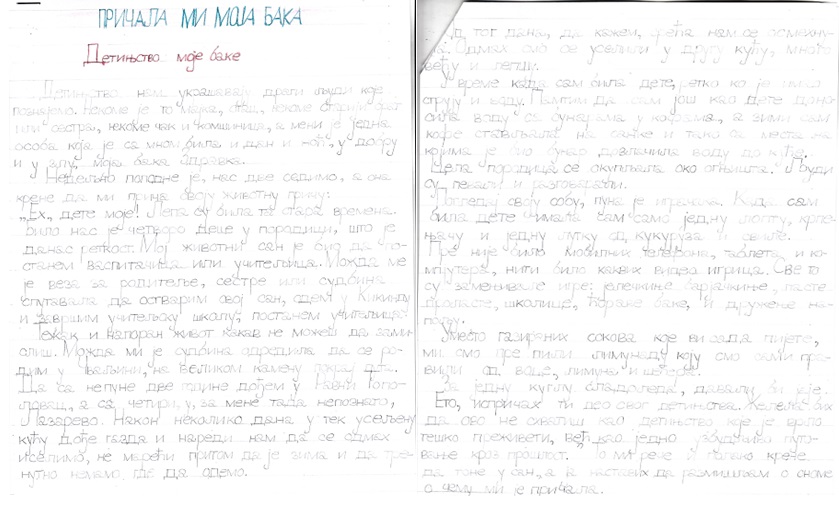 ПРИЧАЛА МИ МОЈА БАКА
Детињство моје баке
Детињство нам украшавају драги људи које
познајемо. Некоме је то мајка, отац, некоме старији брат
или сестра, некоме чак и комшиница, а мени је једна
особа која је са мном била и дан и ноћ, у добру
и у злу, моја бака Здравка.
Недељно поподне је, нас две седимо, а она
крене да ми прича своју животну причу:
„Ех, дете моје! Лепа су била та стара времена.
Било нас је четворо деце у породици, што је
данас реткост. Мој животни сан је био да по-
станем васпитачица или учитељица. Можда ме
је веза за родитеље, сестре или судбина
спутавала да остварим свој сан, одем у Кикинду
и завршим учитељску школу, постанем учитељица.
Тежак и напоран живот какав не можеш да зами-
слиш. Можда ми је судбина одредила да се ро-
дим у на великом камену покрај
Да са непуне две године дођем у Равни Топо-
ловац, а са четири, у, за мене тада непознато,
Лазарево. Након неколико дана у тек усељену
кућу дође газда и нареди нам да се одмах
иселимо, не марећи притом да је зима и да тре-
нутно немамо где да одемо.
Од тог дана, да кажем, срећа нам се осмехну-
ла. Одмах смо се уселили у другу кућу, много
већу и лепшу.
У време када сам била дете, ретко ко је имао
струју и воду. Памтим да сам још као дете доно-
сила воду са бунарима у кофама, а зими сам
кофе стављала на санке и тако са места на
којима је био бунар довлачила воду до куће.
Цела породица се окупљала око огњишта. Људи
су певали и разговарали.
Погледај своју собу, пуна је играчака. Када сам
била дете имала сам само једну лопту, крпе-
њачу и једну лутку од кукуруза и свиле.
Пре није било мобилних телефона, таблета, и ко-
мпјутера, нити било каквих видео игрица. Све то
су замењивале игре: јелечкиње барјачкиње, ласте
проласте, школице, ћораве баке, и дружење на-
пољу.
Уместо газираних сокова које ви сада пијете,
ми смо пре пили лимунаду коју смо сами пра-
вили од воде, лимуна и шећера.
За једну куглу сладоледа, давали би јаје.
Ето, испричах ти део свог детињства. Желела бих
да ово не схватиш као детињство које је врло
тешко преживети, већ као једно узбудљиво путо-
вање кроз прошлост." То ми рече и полако крене
да тоне у сан, а ја наставих да размишљам о ономе
о чему ми је причала.